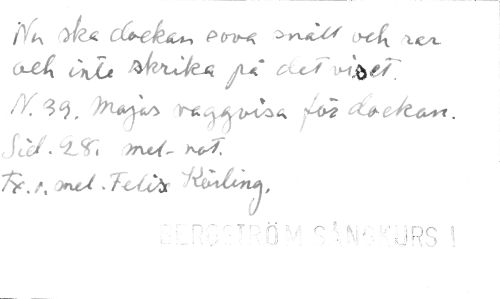 Nu ska dockan sova snällt och rar
och inte skrika på det viset.
N. 39. Majas vaggvisa för dockan.
Sid. 28. mel-not.
Tx. o. mel. Felix Körling.
BERGSTRÖM SÅNGKURS I